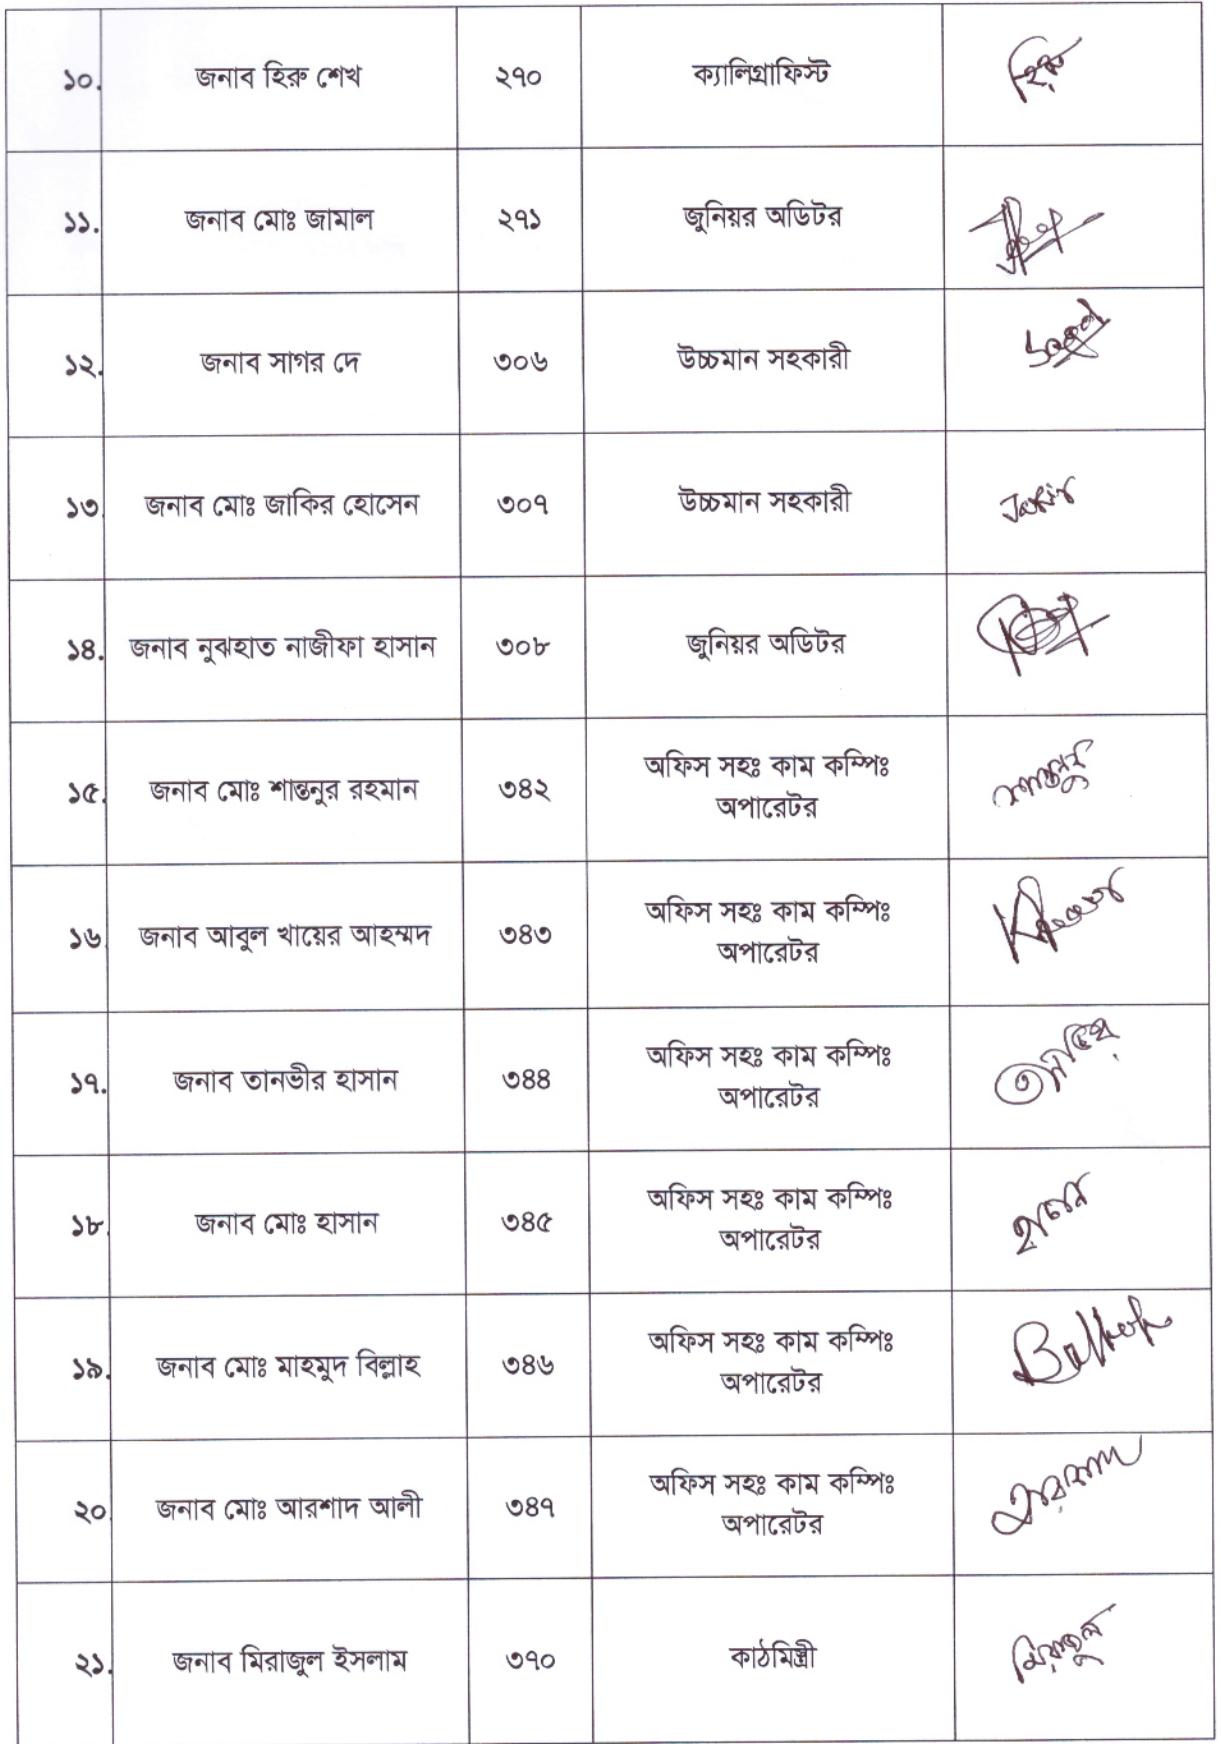 ১০. জনাব হিরু শেখ ২৭০ ক্যালিগ্রাফিস্ট হিরু
১১. জনাব মোঃ জামাল ২৭১ জুনিয়র অডিটর
১২. জনাব সাগর দে ৩০৬ উচ্চমান সহকারী
১৩. জনাব মোঃ জাকির হোসেন ৩০৭ উচ্চমান সহকারী Jakir
১৪. জনাব নুঝহাত নাজীফা হাসান ৩০৮ জুনিয়র অডিটর
১৫. জনাব মোঃ শান্তনুর রহমান ৩৪২ অফিস সহঃ কাম কম্পিঃ
অপারেটর
১৬. জনাব আবুল খায়ের আহম্মদ ৩৪৩ অফিস সহঃ কাম কম্পিঃ
অপারেটর
১৭. জনাব তানভীর হাসান ৩৪৪ অফিস সহঃ কাম কম্পিঃ
অপারেটর
১৮. জনাব মোঃ হাসান ৩৪৫ অফিস সহঃ কাম কম্পিঃ
অপারেটর
১৯. জনাব মোঃ মাহমুদ বিল্লাহ ৩৪৬ অফিস সহঃ কাম কম্পিঃ
অপারেটর
২০ জনাব মোঃ আরশাদ আলী ৩৪৭ অফিস সহঃ কাম কম্পিঃ
অপারেটর
২১. জনাব মিরাজুল ইসলাম ৩৭০ কাঠমিস্ত্রী মিরাজুল